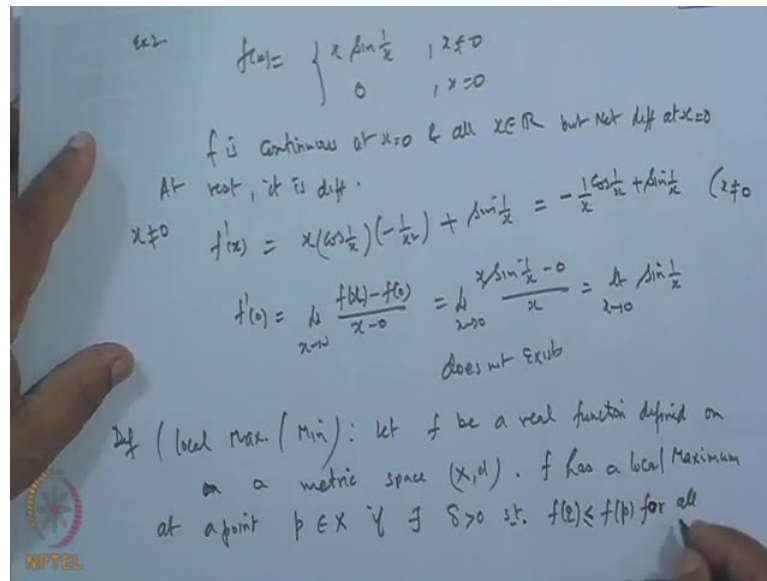 Ex 2. f(x) = { x sin 1/x , x ≠ 0
0 , x = 0
f is continuous at x=0 & all x ∈ ℝ but Not diff at x=0
At rest, it is diff.
x ≠ 0 f'(x) = x(cos 1/x)(-1/x²) + sin 1/x = -1/x cos 1/x + sin 1/x (x ≠ 0
f'(0) = lt x→0 f(x)-f(0) / x-0 = lt x→0 x sin 1/x - 0 / x = lt x→0 sin 1/x
does not exist
Def (local Max. / Min): let f be a real function defined on
a metric space (X, d). f has a local Maximum
at a point p ∈ X if ∃ δ>0 st. f(q) ≤ f(p) for all
NPTEL